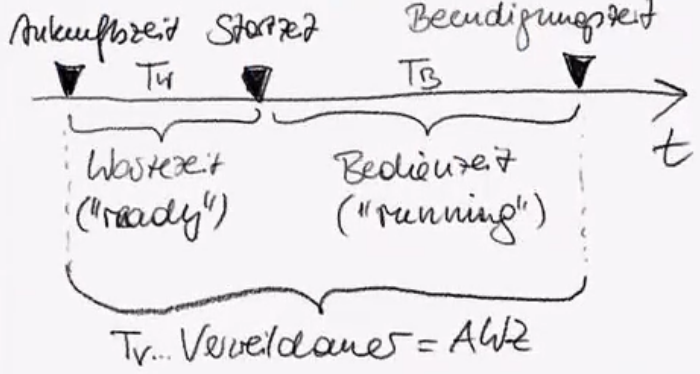 Ankunftszeit Startzeit Beendigungszeit
Tw TB
t
Wartezeit Bedienzeit
("ready") ("running")
Tv... Verweildauer = AWZ